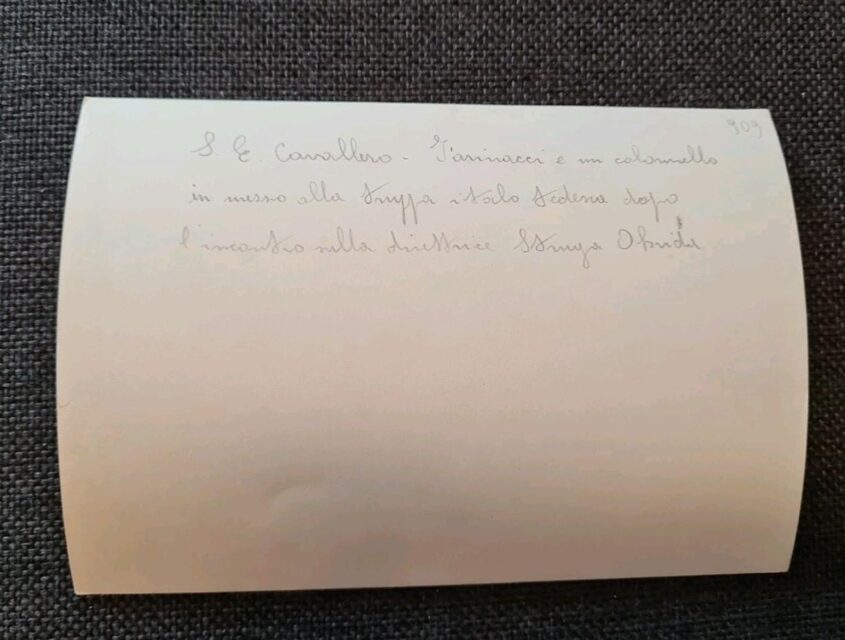 909
S. E. Cavallero - Farinacci e un colonnello
in mezzo alla truppa italo tedesca dopo
l'incontro sulla direttrice Struga Ohrida